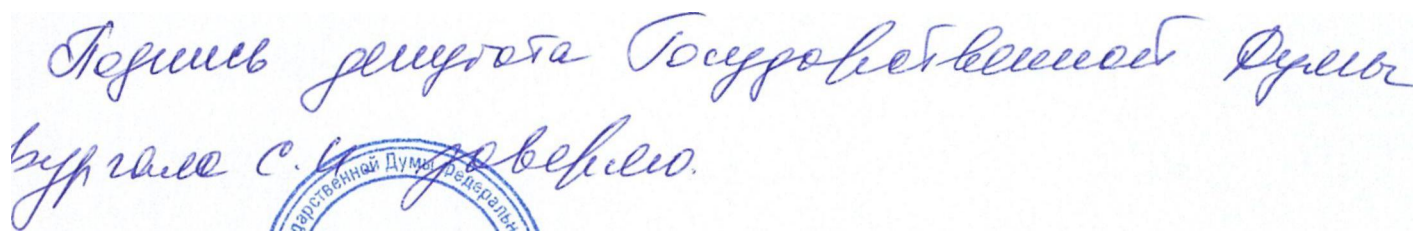 Подпись депутата Государственной Думы
Фургала С.И заверяю.
арственной Думы Федеральн